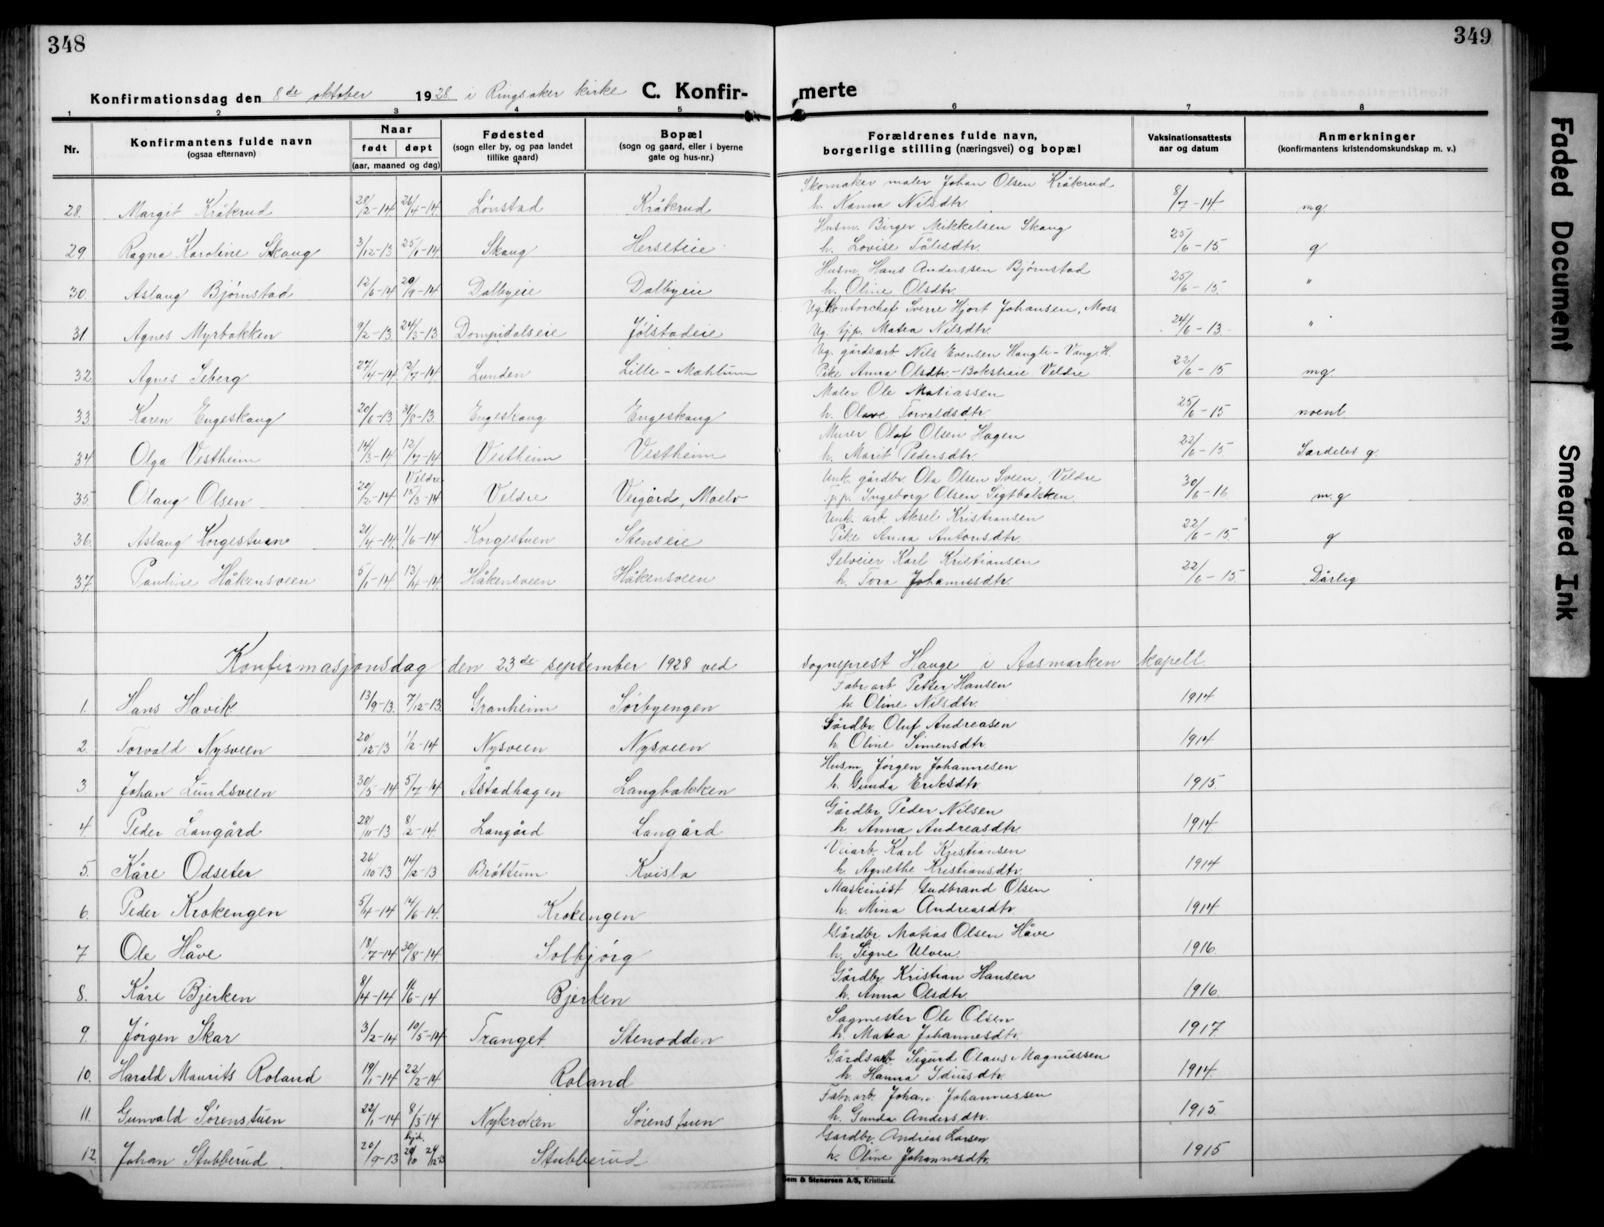 348
349
Konfirmationsdag den 8de oktober 1928 i Ringsaker kirke C. Konfir-merte
1 2 3 4 5 6 7 8
Nr. Konfirmantens fulde navn (ogsaa efternavn) Naar født døpt (aar, maaned og dag) Fødested (sogn eller by, og paa landet tillike gaard) Bopæl (sogn og gaard, eller i byerne gate og hus-nr.) Forældrenes fulde navn, borgerlige stilling (næringsvei) og bopæl Vaksinationsattests aar og datum Anmerkninger (konfirmantens kristendomskundskap m. v.)
Skomaker maler Johan Olsen Kråkrud
28. Margit Kråkrud 28/2-14 26/4-14 Lønstad Kråkrud h. Nanna Nilsdtr. 8/7-14 mg.
Husm. Birger Mikkelsen Skaug
29. Ragna Karoline Skaug 3/12-13 25/1-14 Skaug Herseteie h. Lovise Tolesdtr. 25/6-15 g
Husm. Hans Anderssen Bjørnstad
30. Aslaug Bjørnstad 12/6-14 20/9-14 Dalbyeie Dalbyeie h. Oline Olsdtr. 25/6-15 "
Ug. Kontorchef Sverre Hjort Johansen, Moss
31 Agnes Myrbakken 9/2-13 24/3-13 Dompidalseie Jølstadeie Ug. tjp. Matea Nilsdtr. 24/6-13 "
Ug. gårdsarb. Nils Evensen Haugli-Vang, H.
32 Agnes Seberg 27/4-14 Lunden Lille-Mæhlum Pike Anna Olsdtr.- Veldre 22/6-15 mg.
Maler Ole Matiassen
33 Karen Engeskaug 20/6-13 Engeskaug Engeskaug h. Olave Torvaldsdtr. 25/6-15
Murer Olaf Olsen Hagen
34 Olga Vestheim 14/3-14 12/7-14 Vestheim Vestheim h. Marit Pedersdtr. 22/6-15 Særdeles g.
Unk. gårdbr. Ola Olsen Sveen, Veldre
35 Olaug Olsen 20/2-14 Veldre 15/3-14 Veldre Veigård, Moelv p.p. Ingeborg Olsen Sigtbakken 30/6-16 m.g
Unk. arb. Aksel Kristiansen
36. Aslaug Korgestuen 21/4-14 1/6-14 Korgestuen Stenseie Pike Anna Antonsdtr. 22/6-15 g
Selveier Karl Kristiansen
37. Pauline Håkensveen 5/1-14 13/4-14 Håkensveen Håkensveen h. Tora Johannesdtr. 22/6-15 Dårlig
Konfirmasjonsdag den 23de september 1928 ved sogneprest Hauge i Aasmarken kapell
Fabr.arb. Petter Hansen
1. Hans Havik 13/9-13. 7/12-13. Granheim Sørbyengen h. Oline Nilsdtr. 1914
Gårdbr. Oluf Andreasen
2. Torvald Nysveen 20/12-13 1/2-14 Nysveen Nysveen h. Oline Simensdtr. 1914
Husm. Jørgen Johannesen
3. Johan Lundsveen 30/5-14 5/7-14 Åstadhagen Langbakken h. Gunda Eriksdtr. 1915
Gårdbr. Peder Nilsen
4. Peder Langård 28/11-13 8/2-14. Langård Langård h. Anna Andreasdtr. 1914
Veiarb. Karl Kristiansen
5. Kåre Odseter 26/10-13 14/12-13 Brøttum Kvisla h. Agnethe Kristiansdtr. 1914
Maskinist Gudbrand Olsen
6. Peder Krokengen 5/4-14 14/6-14. Krokengen h. Mina Andreasdtr. 1914
Gårdbr. Matias Olsen Håve
7 Ole Håve 18/7-14 30/8-14 Solbjørg h. Signe Ulven 1916
Gårdbr. Kristian Hansen
8. Kåre Bjerken 8/4-14 Bjerken h. Anna Olsdtr. 1916.
Sagmester Ole Olsen
9. Jørgen Skar 3/2-14 10/5-14 Tranget Stenodden h. Matea Johannesdtr. 1917
Gårdsarb. Sigurd Olaus Magnussen
10. Harald Maurits Roland 19/1-14 22/2-14 Roland h. Hanna Idiusdtr. 1914
Fabr.arb. Johan Johannessen
11. Gunvald Sørenstuen 22/1-14 8/3-14 Nykroken Sørenstuen h. Gunda Andersdtr. 1915
Gardbr. Andreas Larsen
12. Johan Stubberud 20/9-13 Stubberud h. Oline Johannesdtr. 1915
Sem & Stenersen A/S, Kristiania.
Faded Document
Smeared Ink